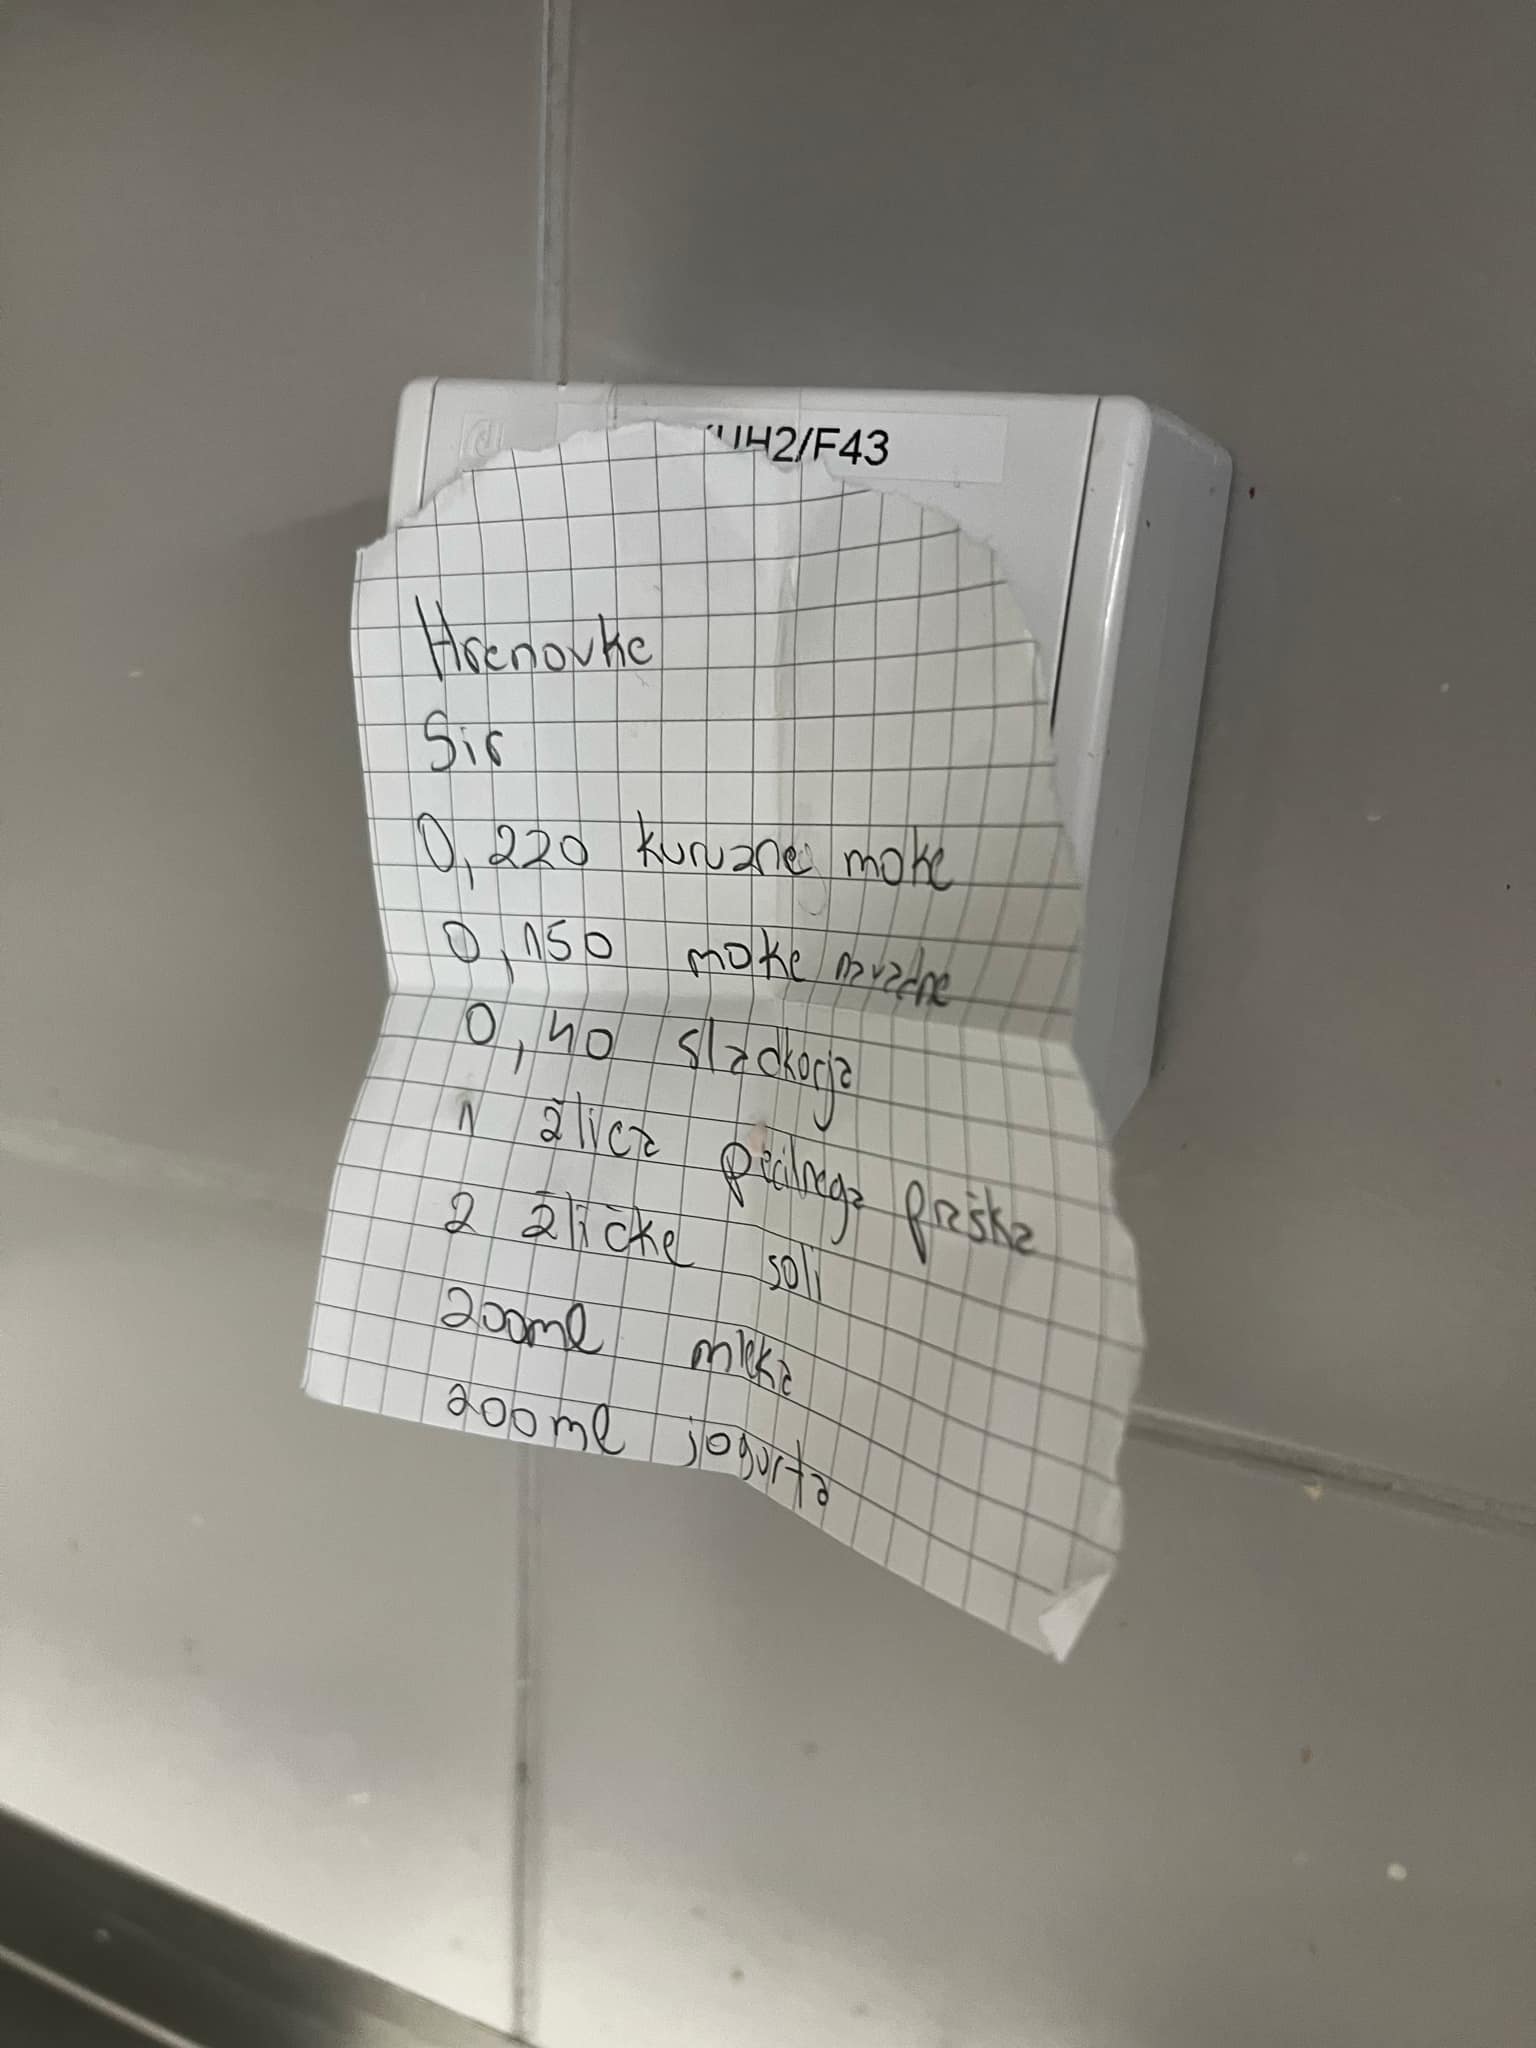 UH2/F43
Hrenovke
Sir
0,220 kuruzne moke
0,150 moke navadne
0,40 sladkorja
1 žlica pecilnega praška
2 žličke soli
200ml mleka
200ml jogurta